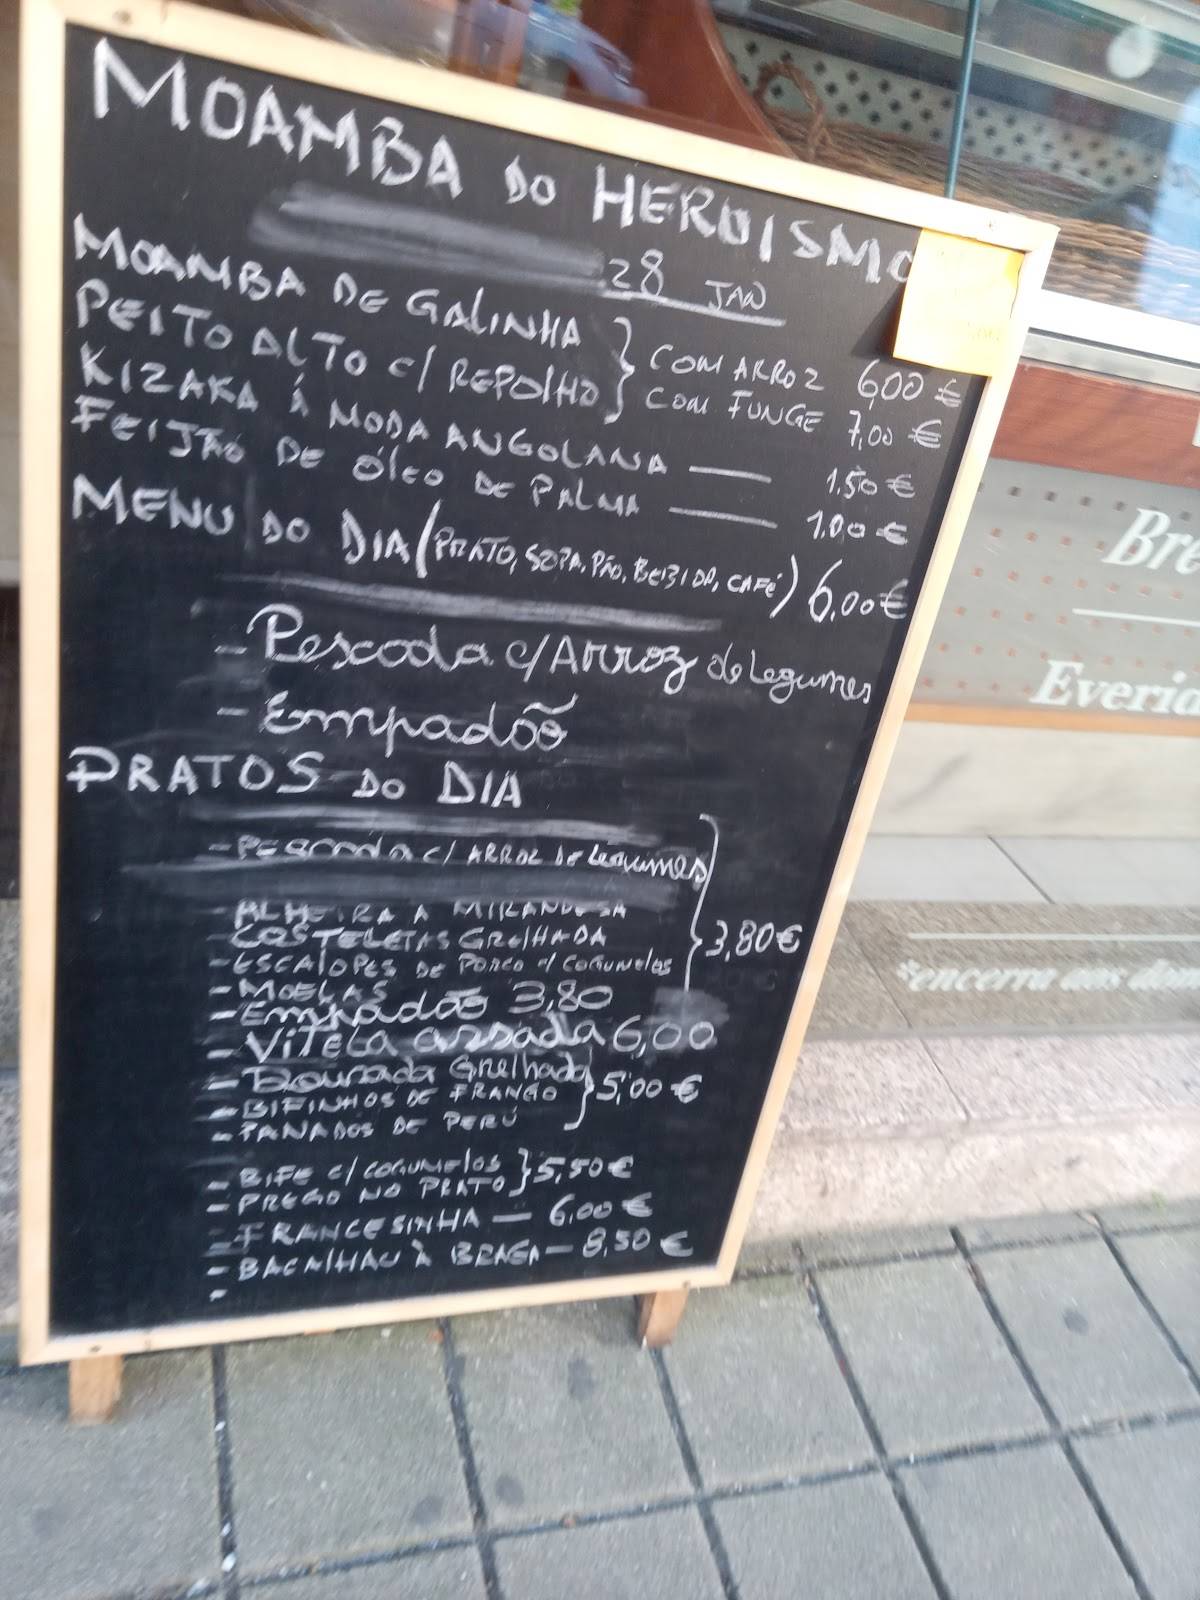 MOAMBA DO HEROISMO
28 JAN
MOAMBA DE GALINHA
PEITO ALTO C/ REPOLHO
COM ARROZ 6,00 €
COM FUNGE 7,00 €
KIZAKA Á MODA ANGOLANA — 1.50 €
FEIJÃO DE ÓLEO DE PALMA — 1.00 €
MENU DO DIA (PRATO, SOPA, PÃO, BEBIDA, CAFÉ) 6,00 €
- Pescada c/ Arroz de Legumes
- Empadão
PRATOS DO DIA
- Pescada c/ ARROZ DE Legumes
- ALHEIRA A MIRANDESA
- COSTELETAS GRELHADA
- ESCALOPES DE PORCO c/ COGUMELOS
3,80 €
- MOELAS
- Empadão 3,80
- Vitela assada 6,00
- Dourada Grelhada
- BIFINHOS DE FRANGO
- PANADOS DE PERÚ
5,00 €
- BIFE c/ COGUMELOS
- PREGO NO PRATO
5,50 €
- FRANCESINHA — 6,00 €
- BACALHAU À BRAGA — 8,50 €
-
Bre
Everid
*encerra aos dom